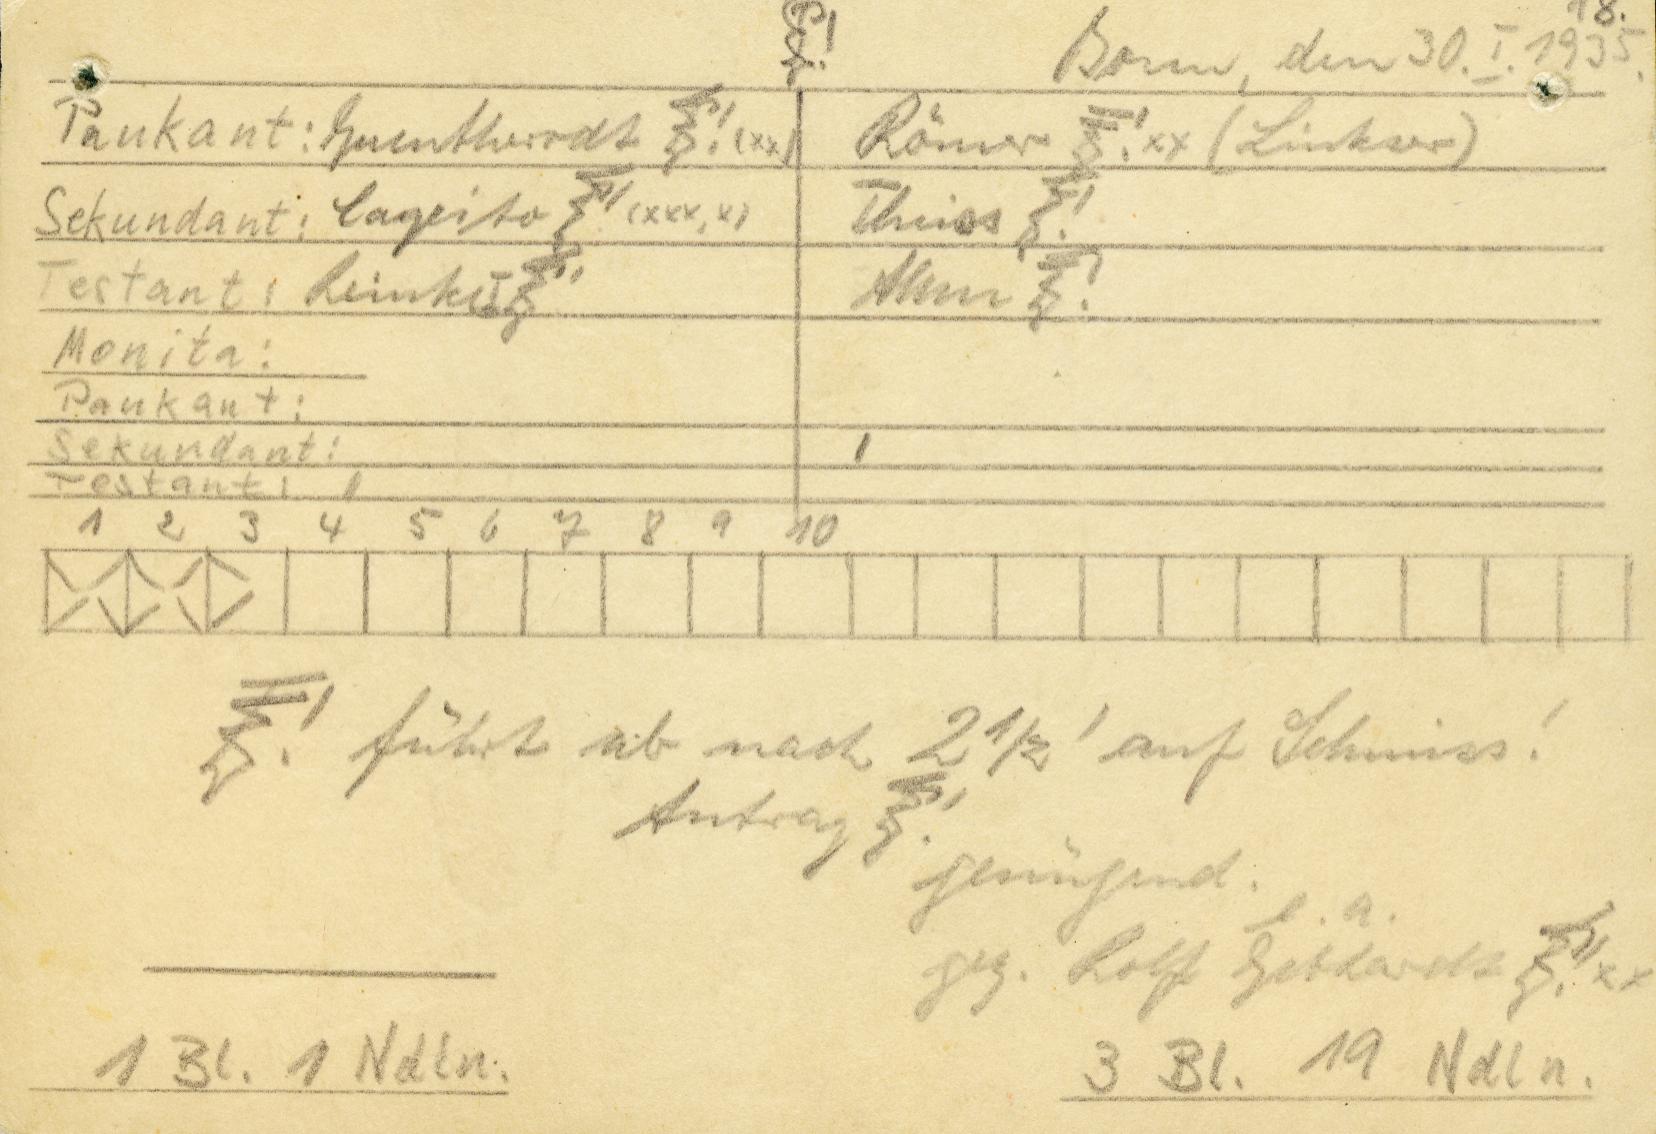 18.
Bonn, den 30. I. 1935.
Paukant: (xx) Römer xx (Linkser)
Sekundant: (xxx, x) Theiss
Testant: Reinke
Monita:
Paukant:
Sekundant: I
Testant: I
1 2 3 4 5 6 7 8 9 10
führt ab nach 2 1/2' auf Schmiss!
Antrag
genügend.
e. a.
gez. Rolf Gebhardt xx
1 Bl. 1 Ndln. 3 Bl. 19 Ndln.